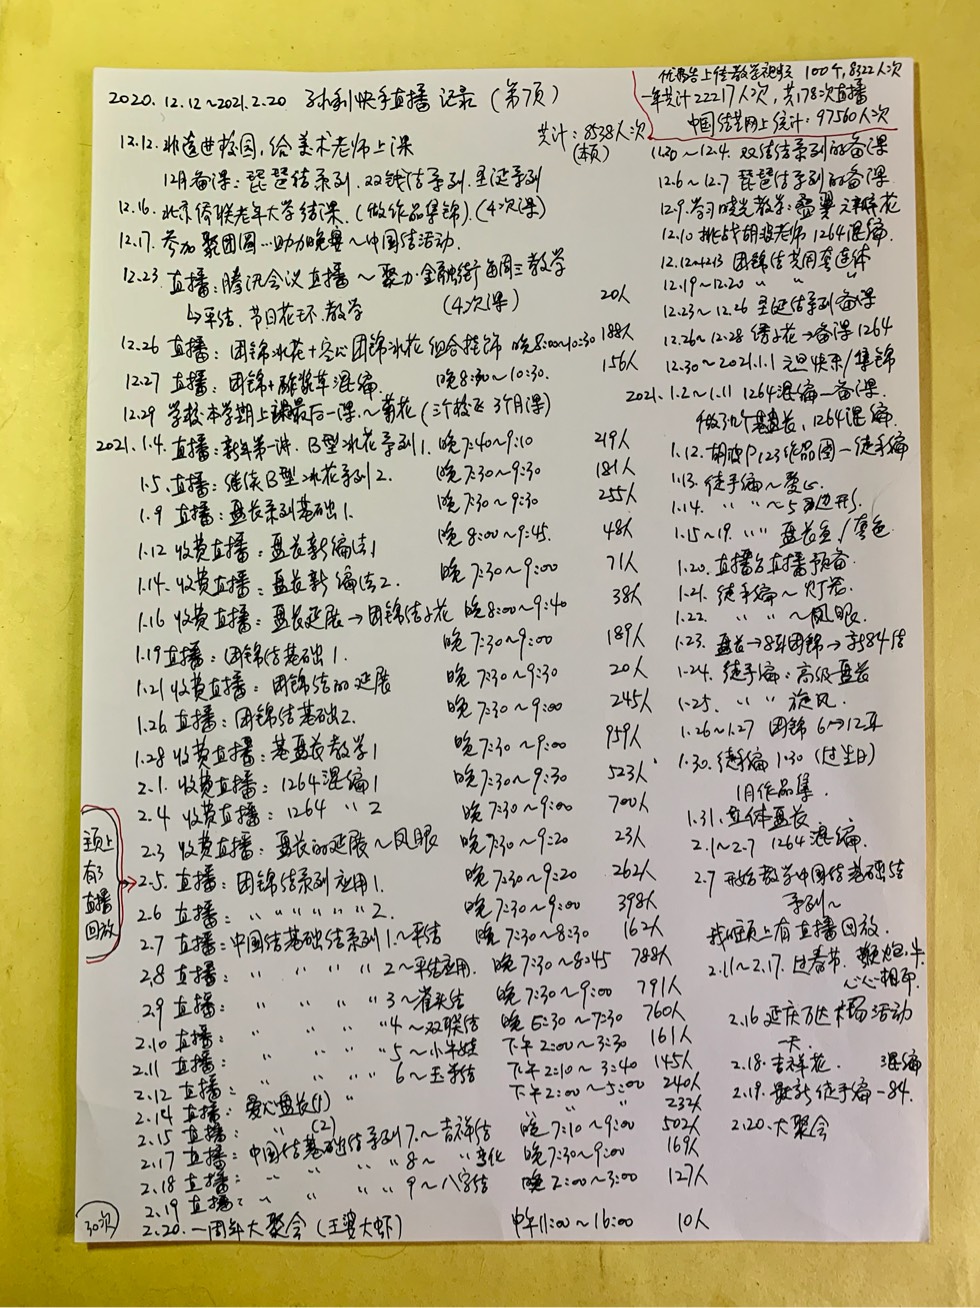 2020.12.12~2021.2.20 孙利快手直播记录（第7页）
优酷台上传教学视频 100个，8322人次
一年共计22217人次，共178次直播
中国结艺网上统计：97560人次
共计：8538人次
（本页）
12.12.非遗进校园，给美术老师上课
12月备课：琵琶结系列.双钱结系列.圣诞系列
12.16.北京侨联老年大学结课.（做作品集锦）.（4次课）
12.17.参加聚团圆…助力晚宴~中国结活动.
12.23.直播：腾讯会议直播~聚力金融街每周三教学
↳平结.节日花环.教学 （4次课） 20人
12.26 直播：团锦冰花+空心团锦冰花组合挂饰 晚8:00~10:30 188人
12.27 直播：团锦+酢浆草混编. 晚8:30~10:30. 156人
12.29 学校本学期上课最后一课.~菊花（三个校区 3个月课）
2021.1.4.直播：新年第一讲.B型冰花系列1. 晚7:40~9:10 219人
1.5.直播：继续B型冰花系列2. 晚7:30~9:30 181人
1.9 直播：盘长系列基础1. 晚7:30~9:30 255人
1.12 收费直播：盘长新编法1 晚8:00~9:45. 48人
1.14.收费直播：盘长新编法2. 晚7:30~9:00 71人
1.16 收费直播：盘长延展→团锦结子花 晚8:00~9:40 38人
1.19直播：团锦结基础1. 晚7:30~9:00 189人
1.21收费直播：团锦结的延展 晚7:30~9:30 20人
1.26.直播：团锦结基础2. 晚7:30~9:00 245人
1.28 收费直播：基盘长教学1 晚7:30~9:00 959人
2.1.收费直播：1264混编1 晚7:30~9:30 523人
2.4 收费直播：1264 〃 2 晚7:30~9:00 700人
2.3 收费直播：盘长的延展~凤眼 晚7:30~9:20 23人
2.5.直播：团锦结系列应用1. 晚7:30~9:20 262人
2.6 直播：〃〃〃〃〃〃2. 晚7:30~9:00 398人
2.7 直播：中国结基础结系列1.~平结 晚7:30~8:30 162人
2.8 直播：〃〃〃〃2~平结应用. 晚7:30~8:45 788人
2.9 直播：〃〃〃〃3~雀头结 晚7:30~9:00 791人
2.10 直播：〃〃〃〃4~双联结 晚6:30~7:30 760人
2.11 直播：〃〃〃〃5~小牛娃 下午2:00~3:30 161人
2.12 直播：〃〃〃6~玉米结 下午2:10~3:40 145人
2.14 直播：爱心盘长(1) 下午2:00~5:00 240人
2.15 直播：〃(2) 〃 〃 232人
2.17 直播：中国结基础结系列7.~吉祥结 晚7:10~9:00 502人
2.18 直播：〃〃〃〃8~〃变化 晚7:30~9:00 169人
2.19 直播：〃〃〃〃9~八字结 晚2:00~3:00 127人
2.20.一周年大聚会（王婆大虾） 中午11:00~16:00 10人
30次
主页上
有了
直播
回放
11.30~12.4.双钱结系列的备课
12.6~12.7 琵琶结系列的备课
12.9.学习晓光教学：叠翼六瓣花
12.10 挑战胡波老师1264混编.
12.12~12.13 团锦结共用套连体
12.19~12.20 〃 〃 〃
12.23~12.26 圣诞结系列备课
12.26~12.28 绣球花→备课1264
12.30~2021.1.1 元旦快乐/集锦
2021.1.2~1.11 1264混编—备课.
做了九个基盘长，1264混编.
1.12.胡波P123作品图—徒手编
1.13.徒手编~爱心.
1.14. 〃 〃 ~5边形.
1.15~19. 〃〃 盘长鱼/
1.20.直播与直播预备.
1.21.徒手编~灯笼.
1.22. 〃 〃 ~凤眼.
1.23.盘长→8耳团锦→新84结
1.24.徒手编：高级盘长
1.25. 〃 〃 旋风.
1.26~1.27 团锦6→12耳
1.30.徒手编 1:30（过生日）
1月作品集.
1.31.立体盘长
2.1~2.7 1264混编.
2.7 开始教学中国结基础结
系列~
我主页上有直播回放.
2.11~2.17.过春节.鞭炮.牛
心心相印.
2.16 延庆万达广场活动
一天.
2.18.吉祥花. 混编
2.19.最新徒手编—84.
2.20.大聚会